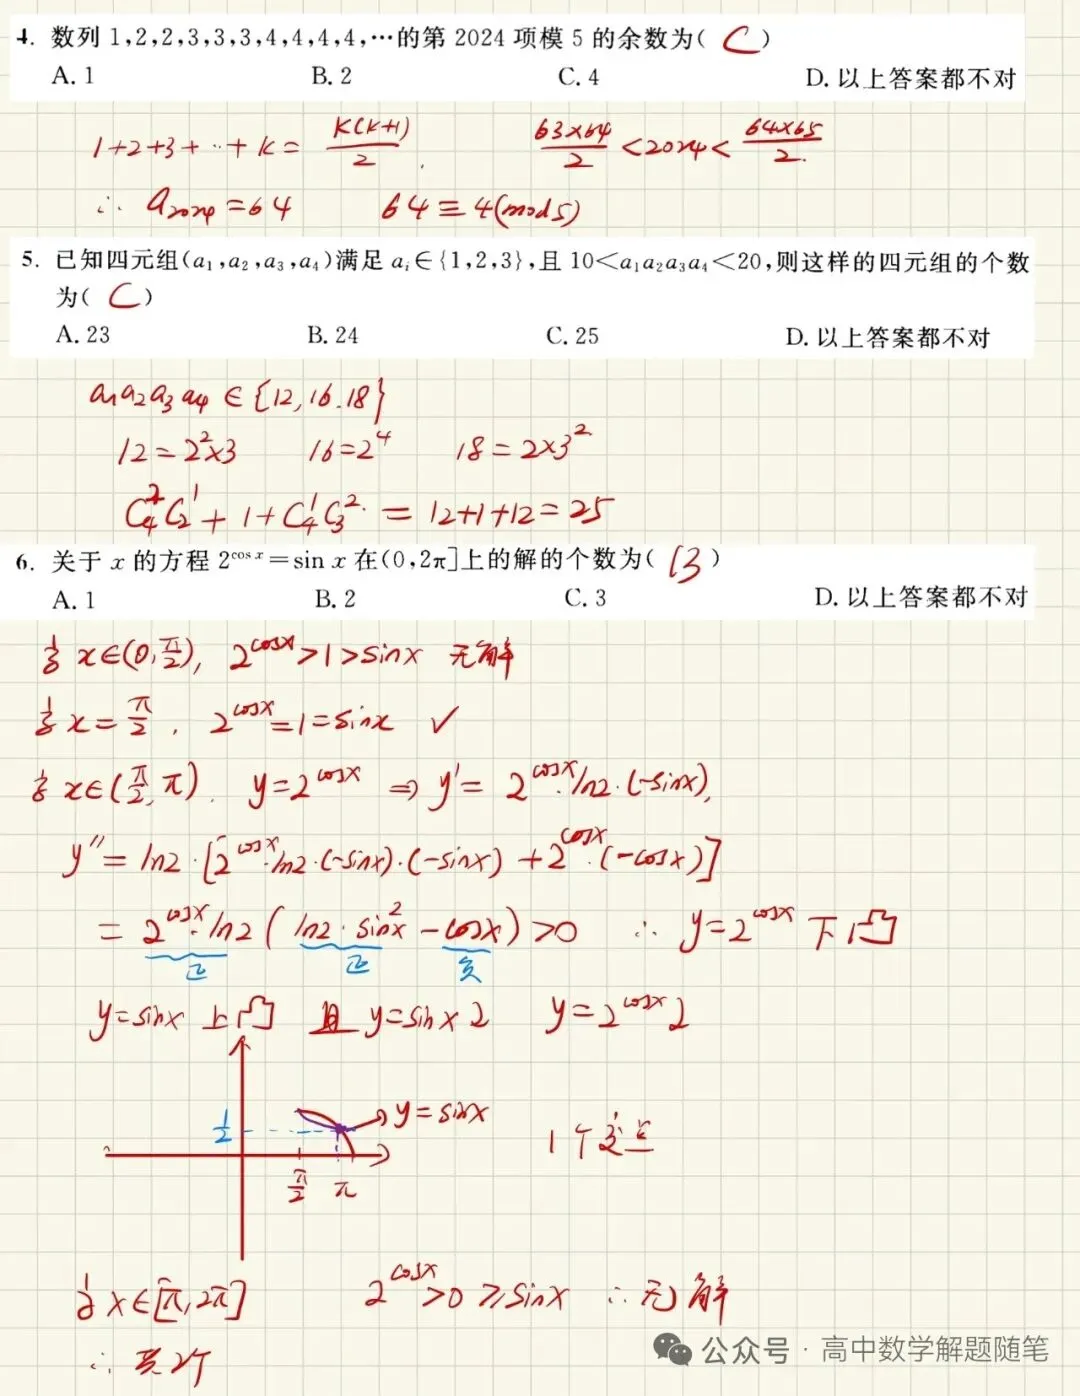 4. 数列 1,2,2,3,3,3,4,4,4,4,⋯的第 2024 项模 5 的余数为( C )
A. 1 B. 2 C. 4 D. 以上答案都不对
1+2+3+⋯+k= k(k+1)/2 63×64/2 <2024< 64×65/2.
∴ a₂₀₂₄=64 64≡4(mod5)
5. 已知四元组(a₁,a₂,a₃,a₄)满足 aᵢ∈{1,2,3},且 10<a₁a₂a₃a₄<20,则这样的四元组的个数
为( C )
A. 23 B. 24 C. 25 D. 以上答案都不对
a₁a₂a₃a₄∈{12,16.18}
12=2²×3 16=2⁴ 18=2×3²
C₄²C₂¹+1+C₄¹C₃²=12+1+12=25
6. 关于 x 的方程 2^cos x=sin x 在(0,2π]上的解的个数为( B )
A. 1 B. 2 C. 3 D. 以上答案都不对
当 x∈(0,π/2), 2^cosx>1>sinx 无解
当 x=π/2, 2^cosx=1=sinx ✓
当 x∈(π/2,π). y=2^cosx ⇒ y'=2^cosx·ln2·(-sinx),
y''=ln2·[2^cosx·ln2·(-sinx)·(-sinx)+2^cosx·(-cosx)]
=2^cosx·ln2(ln2·sin²x-cosx)>0 ∴ y=2^cosx 下凸
正 正 负
y=sinx 上凸 且 y=sinx↘ y=2^cosx↘
y=sinx
1/2
1个交点
π/2 π
当 x∈[π,2π] 2^cosx>0≥sinx ∴无解
∴ 共2个
公众号 · 高中数学解题随笔